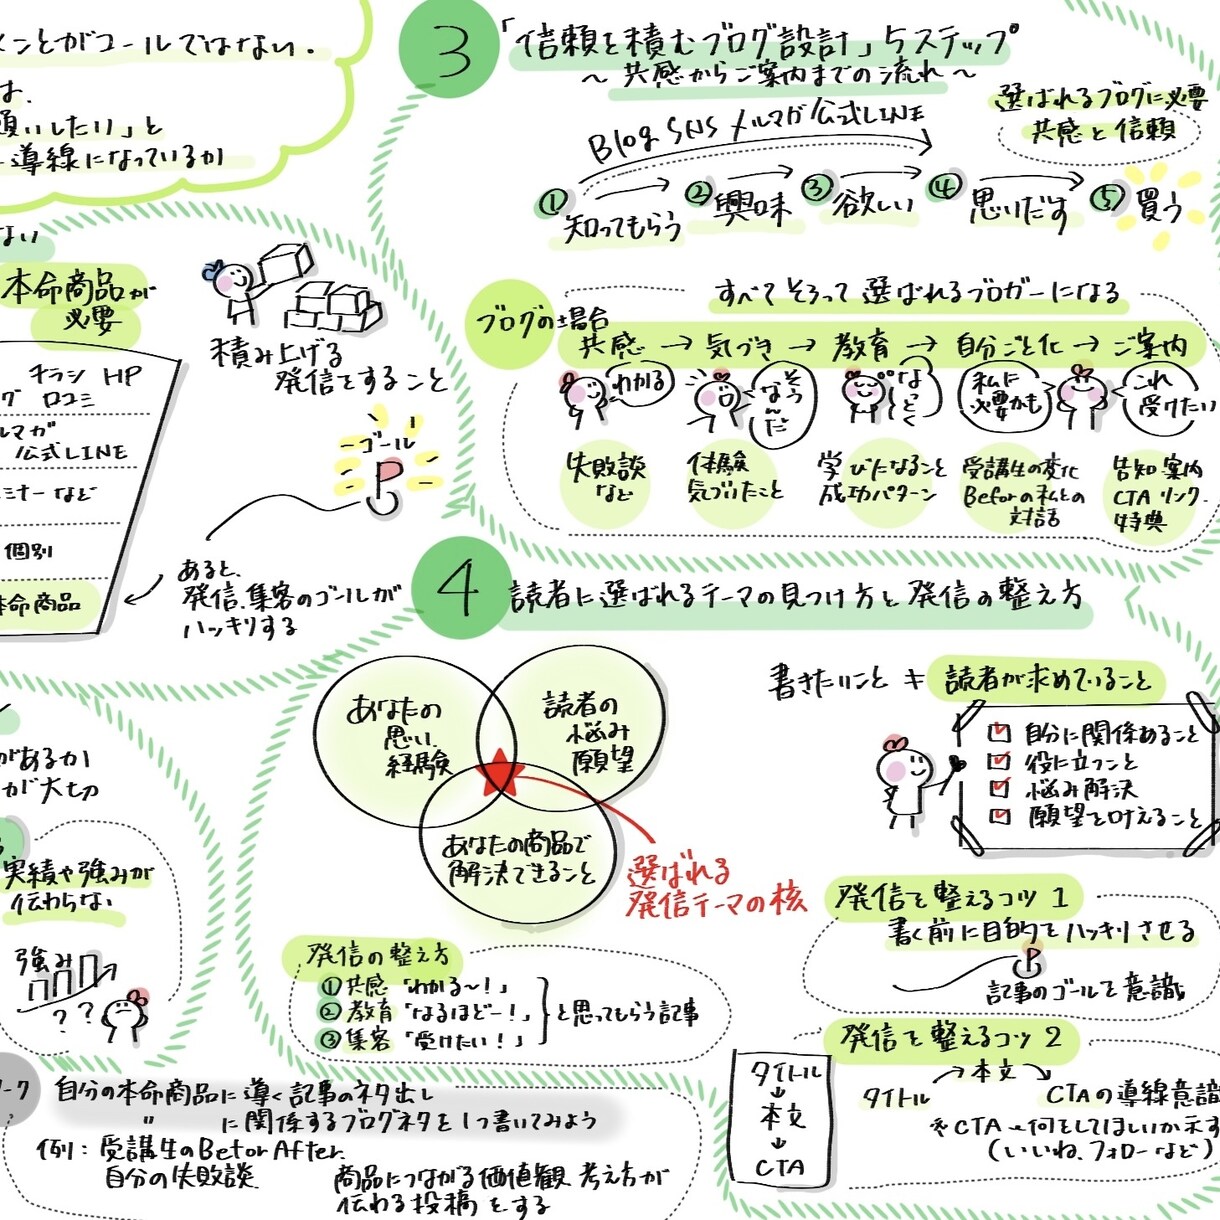 ことがゴールではない.
は.
願いしたい」と
導線になっているか
ない
本命商品が
必要
チラシ HP
グ 口コミ
ルマガ
公式LINE
ミナーなど
個別
本命商品
積み上げる
発信をすること
ゴール
あると、
発信、集客のゴールが
ハッキリする
3 「信頼を積むブログ設計」5ステップ
～ 共感からご案内までの流れ ～
選ばれるブログに必要
共感と信頼
Blog SNS メルマガ 公式LINE
① 知ってもらう → ② 興味 → ③ 欲しい → ④ 思いだす → ⑤ 買う
すべてそろって選ばれるブロガーになる
ブログの場合
共感 → 気づき → 教育 → 自分ごと化 → ご案内
わかる
そう
な〜んだ
なっとく
私に
必要かも
これ
受けたい
失敗談
など
体験
気づいたこと
学びになること
成功パターン
受講生の変化
Beforの私との
対話
告知 案内
CTA リンク
特典
4 読者に選ばれるテーマの見つけ方と発信の整え方
あなたの
思い、
経験
読者の
悩み
願望
あなたの商品で
解決できること
選ばれる
発信テーマの核
書きたいこと ≠ 読者が求めていること
自分に関係あること
役に立つこと
悩み解決
願望を叶えること
があるか
が大切
実績や強みが
伝わらない
強み
? ?
発信の整え方
①共感「わかる〜！」
②教育「なるほどー！」
③集客「受けたい！」
と思ってもらう記事
発信を整えるコツ 1
書く前に目的をハッキリさせる
記事のゴールを意識
発信を整えるコツ 2
タイトル → 本文 → CTAの導線意識
※CTA→何をしてほしいか示す
（いいね、フォローなど）
タイトル
↓
本文
↓
CTA
ーク
自分の本命商品に導く記事のネタ出し
〃 に関係するブログネタを1つ書いてみよう
例：受講生のBefor After.
自分の失敗談
商品につながる価値観 考え方が
伝わる投稿をする